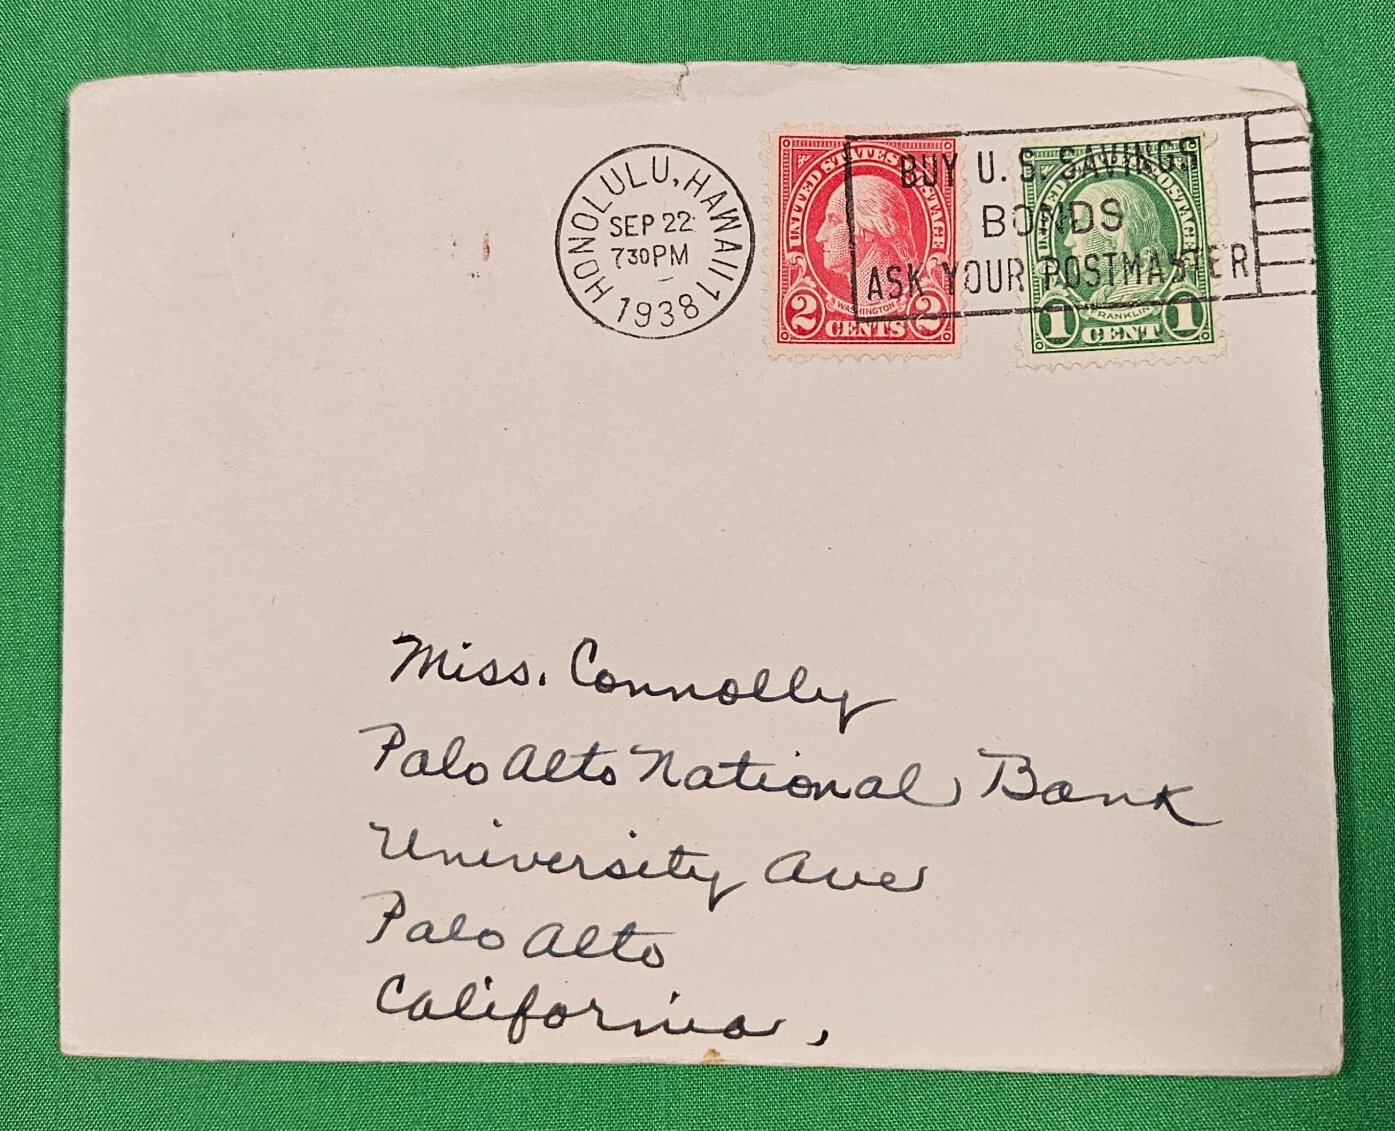 HONOLULU, HAWAII 1
SEP 22
730PM
1938
UNITED STATES POSTAGE
WASHINGTON
2 CENTS 2
BUY U. S. SAVINGS
BONDS
ASK YOUR POSTMASTER
UNITED STATES POSTAGE
FRANKLIN
1 CENT 1
Miss. Connolly
Palo Alto National Bank
University Ave
Palo Alto
California,